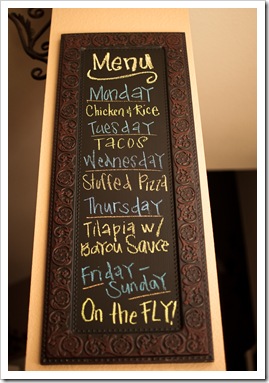 Menu
Monday
Chicken & Rice
Tuesday
TACOS
Wednesday
Stuffed Pizza
Thursday
Tilapia w/
Bayou Sauce
Friday -
Sunday
On the FLY!